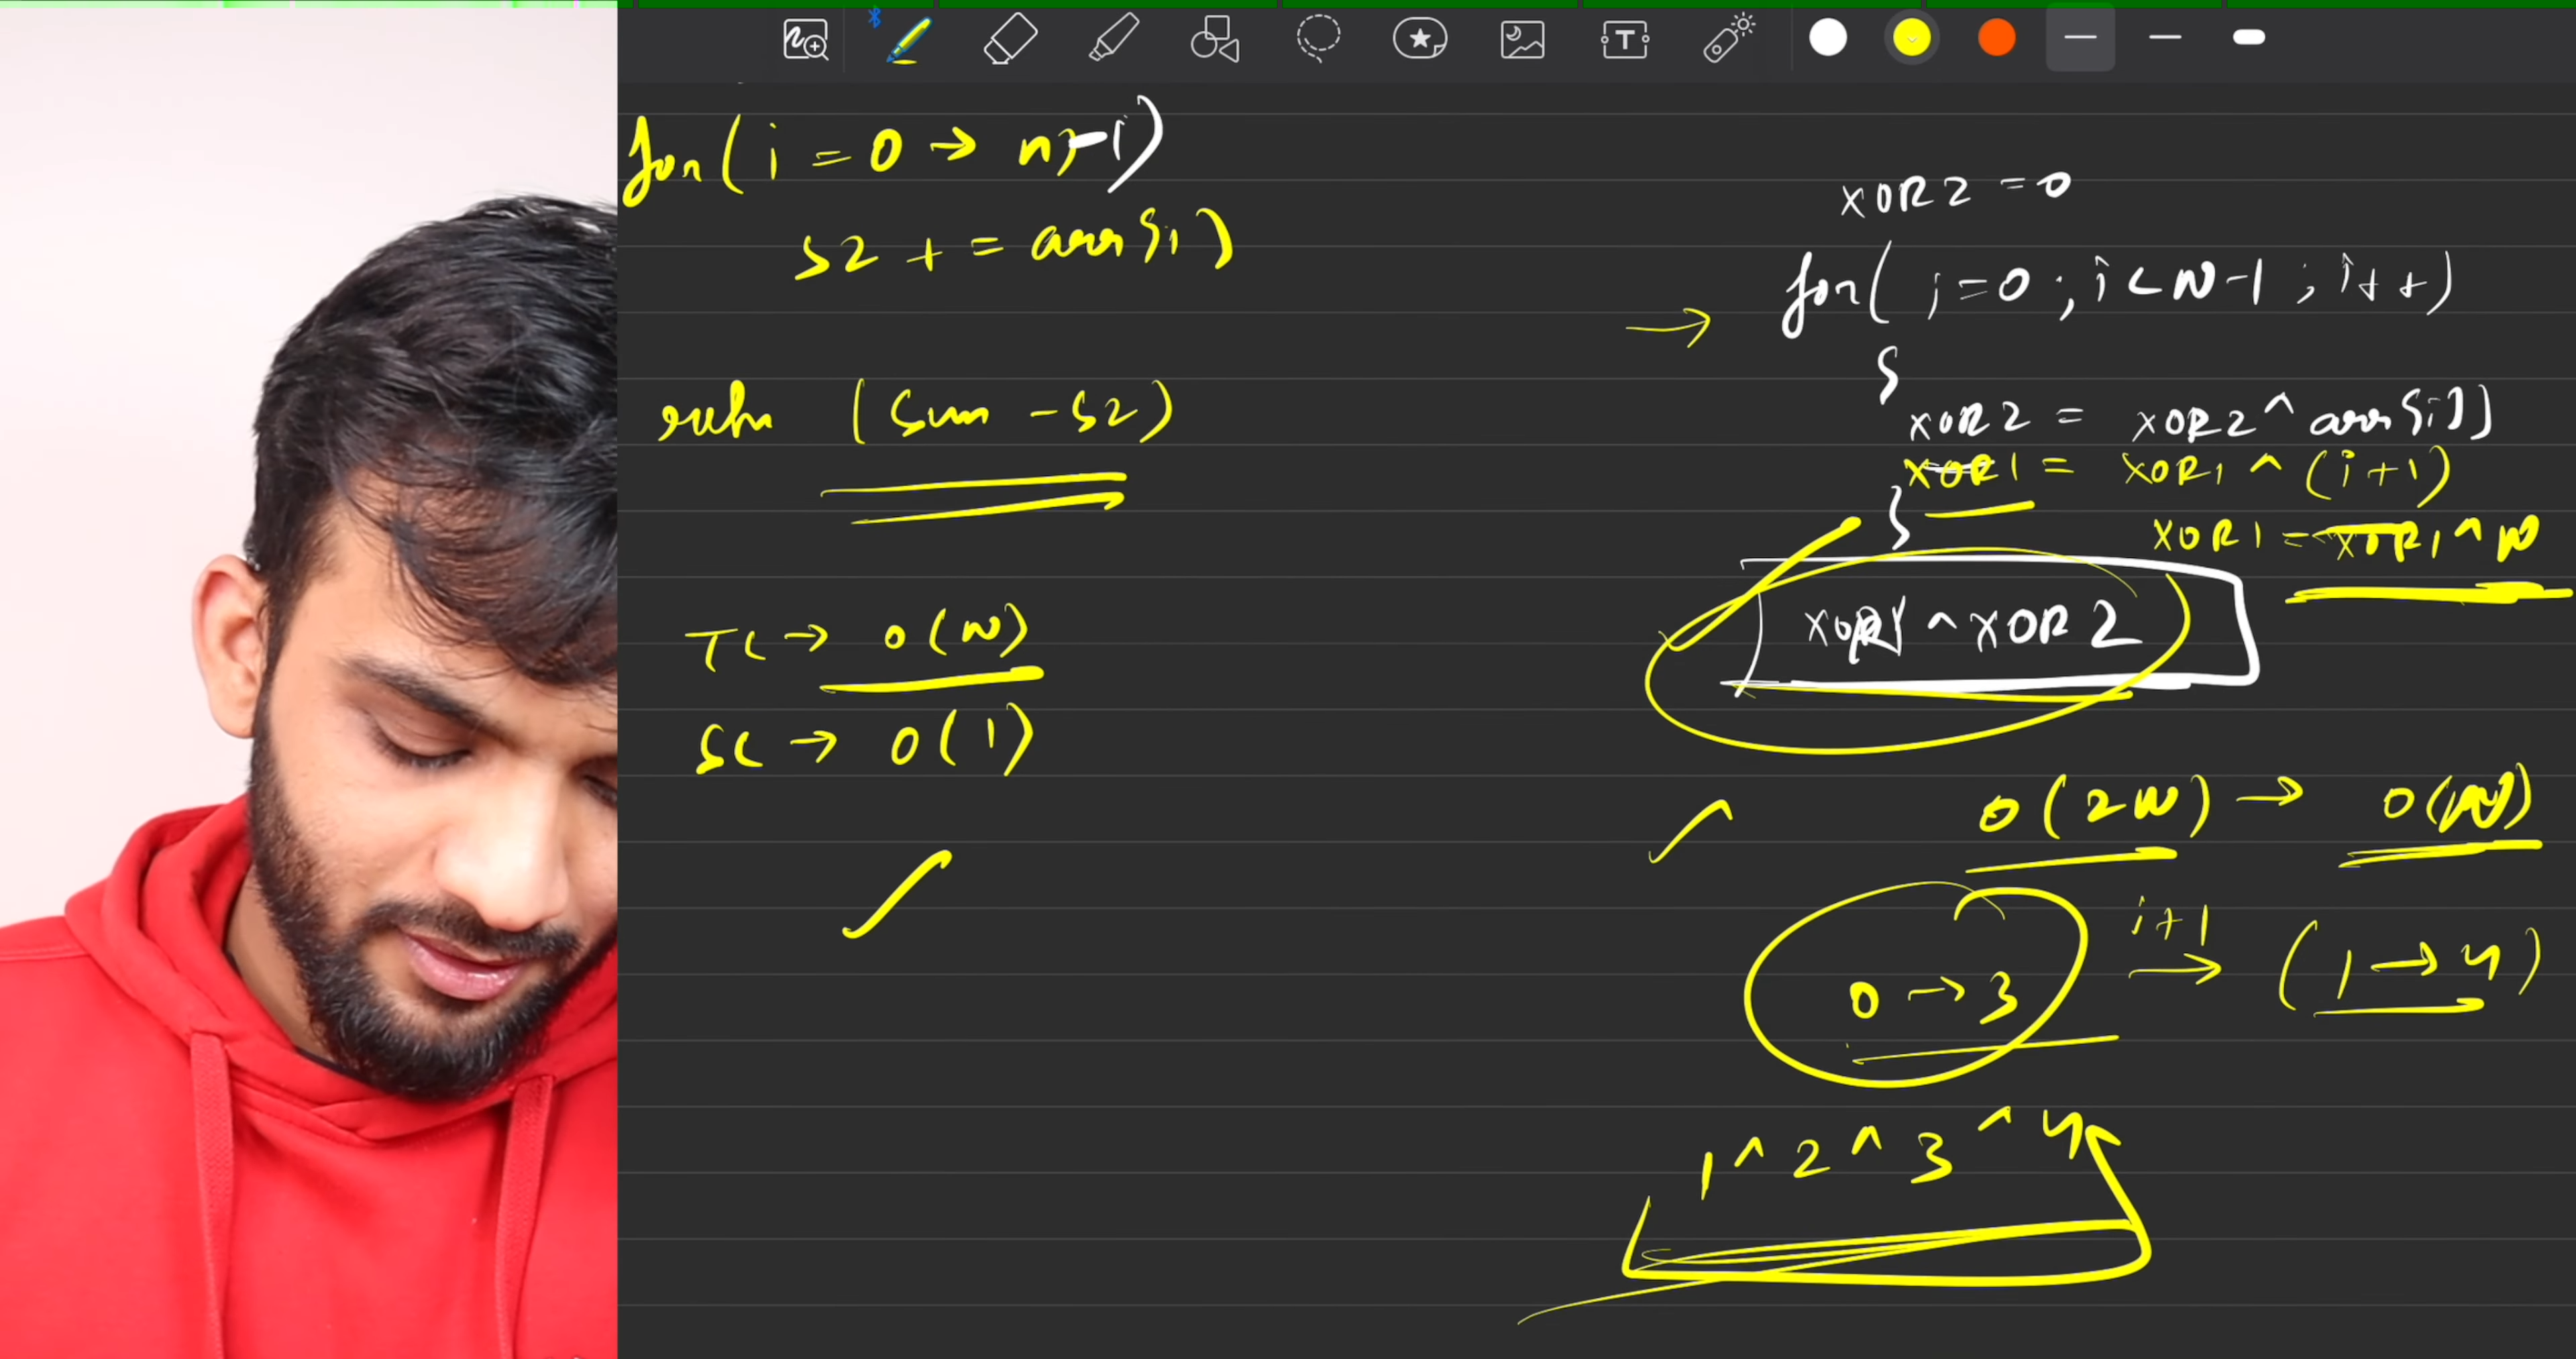 for( i = 0 → n-1)
S2 += arr[i]
return (Sum - S2)
TC → O(N)
SC → O(1)
XOR2 = 0
for( i=0 ; i<N-1 ; i++)
{
XOR2 = XOR2 ^ arr[i]
XOR1 = XOR1 ^ (i+1)
}
XOR1 = XOR1 ^ N
XOR1 ^ XOR2
O(2N) → O(N)
0 → 3
i+1
→ (1 → 4)
1 ^ 2 ^ 3 ^ 4